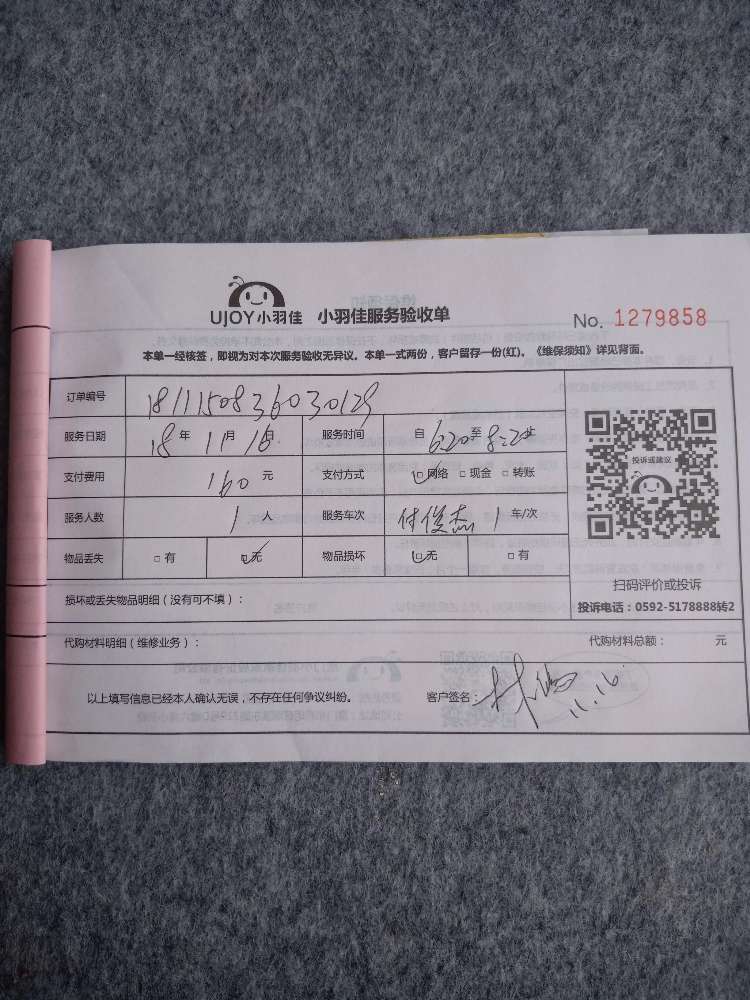 UJOY小羽佳 小羽佳服务验收单
No. 1279858
本单一经核签，即视为对本次服务验收无异议。本单一式两份，客户留存一份(红)。《维保须知》详见背面。
订单编号 1811150836030129
服务日期 18 年 11 月 16 日 服务时间 自 6:20 至 8:20 止
支付费用 160 元 支付方式 ☑网络 □现金 □转账
服务人数 1 人 服务车次 付俊杰 1 车/次
物品丢失 □有 ☑无 物品损坏 ☑无 □有
投诉或建议
扫码评价或投诉
损坏或丢失物品明细（没有可不填）：
投诉电话：0592-5178888转2
代购材料明细（维修业务）： 代购材料总额： 元
以上填写信息已经本人确认无误，不存在任何争议纠纷。 客户签名： 林 11.16.